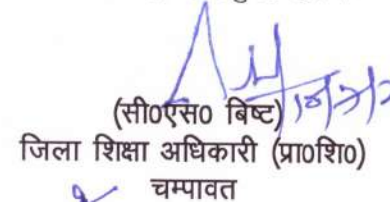 (सी0एस0 बिष्ट)
जिला शिक्षा अधिकारी (प्रा0शि0)
चम्पावत